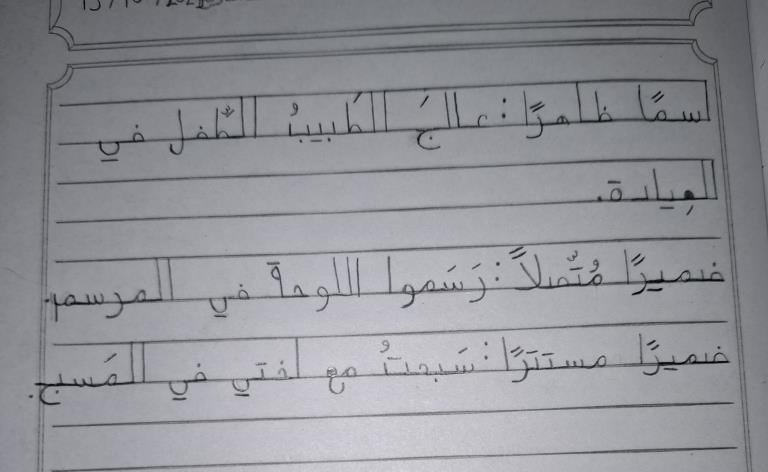 اسمًا ظاهرًا: عالجَ الطَبيبُ الطِّفل في
العِيادة.
ضميرًا مُتَّصلاً: رَسَموا اللوحة في المرسم.
ضميرًا مستترًا: سَبحتُ مع اختي في المَسبح.